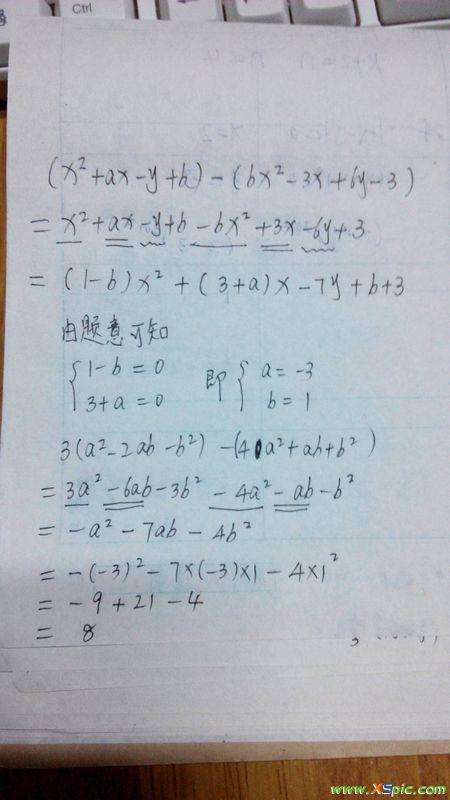 Ctrl
(x²+ax-y+b)-(bx²-3x+6y-3)
= x²+ax-y+b-bx²+3x-6y+3
= (1-b)x²+(3+a)x-7y+b+3
由题意可知
{1-b=0 即 {a=-3
3+a=0 b=1
3(a²-2ab-b²)-(4a²+ab+b²)
= 3a²-6ab-3b²-4a²-ab-b²
= -a²-7ab-4b²
= -(-3)²-7×(-3)×1-4×1²
= -9+21-4
= 8
www.XSpic.com